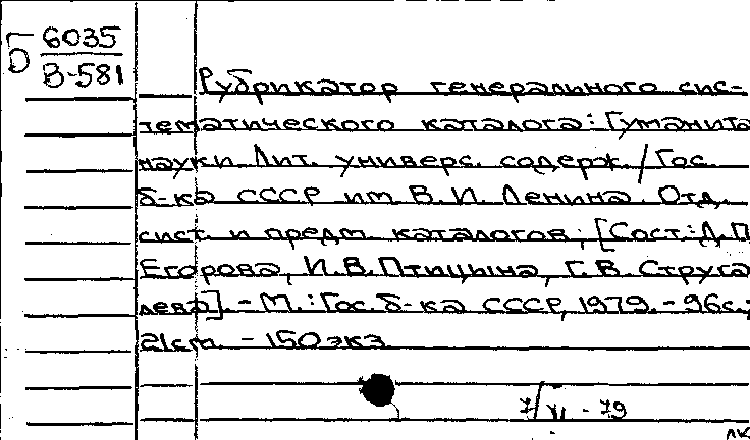 Б 6035
В-581
Рубрикатор генерального сис-
тематического каталога: Гуманита
науки. Лит. универс. содерж. / Гос.
б-ка СССР им. В.И. Ленина. Отд.
сист. и предм. каталогов; [Сост.: Л.П
Егорова, И.В. Птицына, Г.В. Струга
лева]. - М.: Гос. б-ка СССР, 1979. - 96с.;
21см. - 150 экз.
7/VI - 79